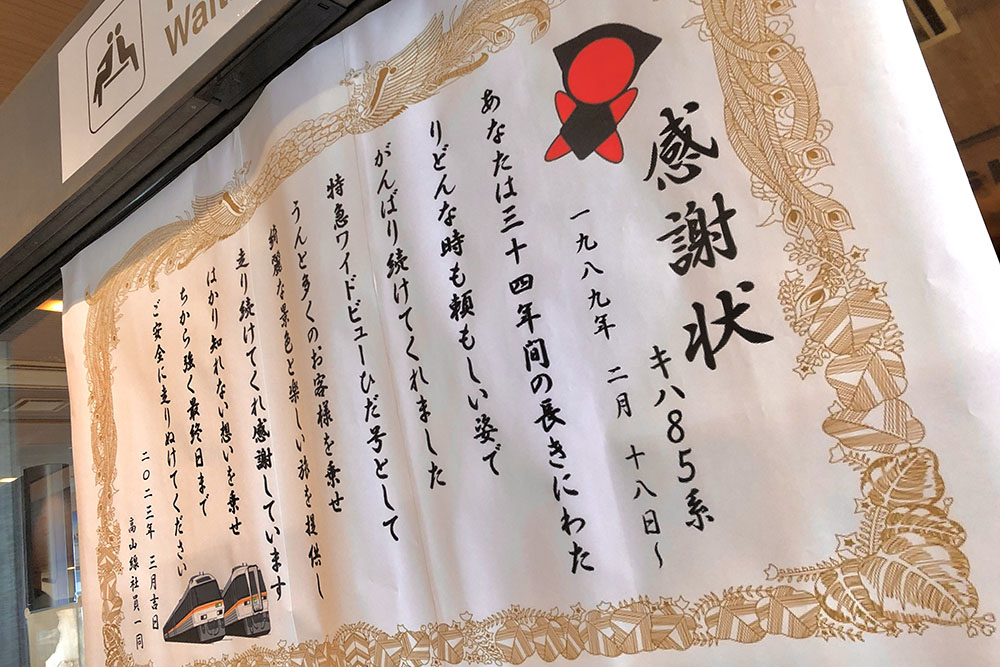 Wait
感謝状
キハ85系
一九八九年 二月 十八日～
あなたは三十四年間の長きにわた
りどんな時も頼もしい姿で
がんばり続けてくれました
特急ワイドビューひだ号として
うんと多くのお客様を乗せ
綺麗な景色と楽しい旅を提供し
走り続けてくれ感謝しています
はかり知れない想いを乗せ
ちから強く最終日まで
ご安全に走りぬけてください
二〇二三年 三月吉日
高山線社員一同